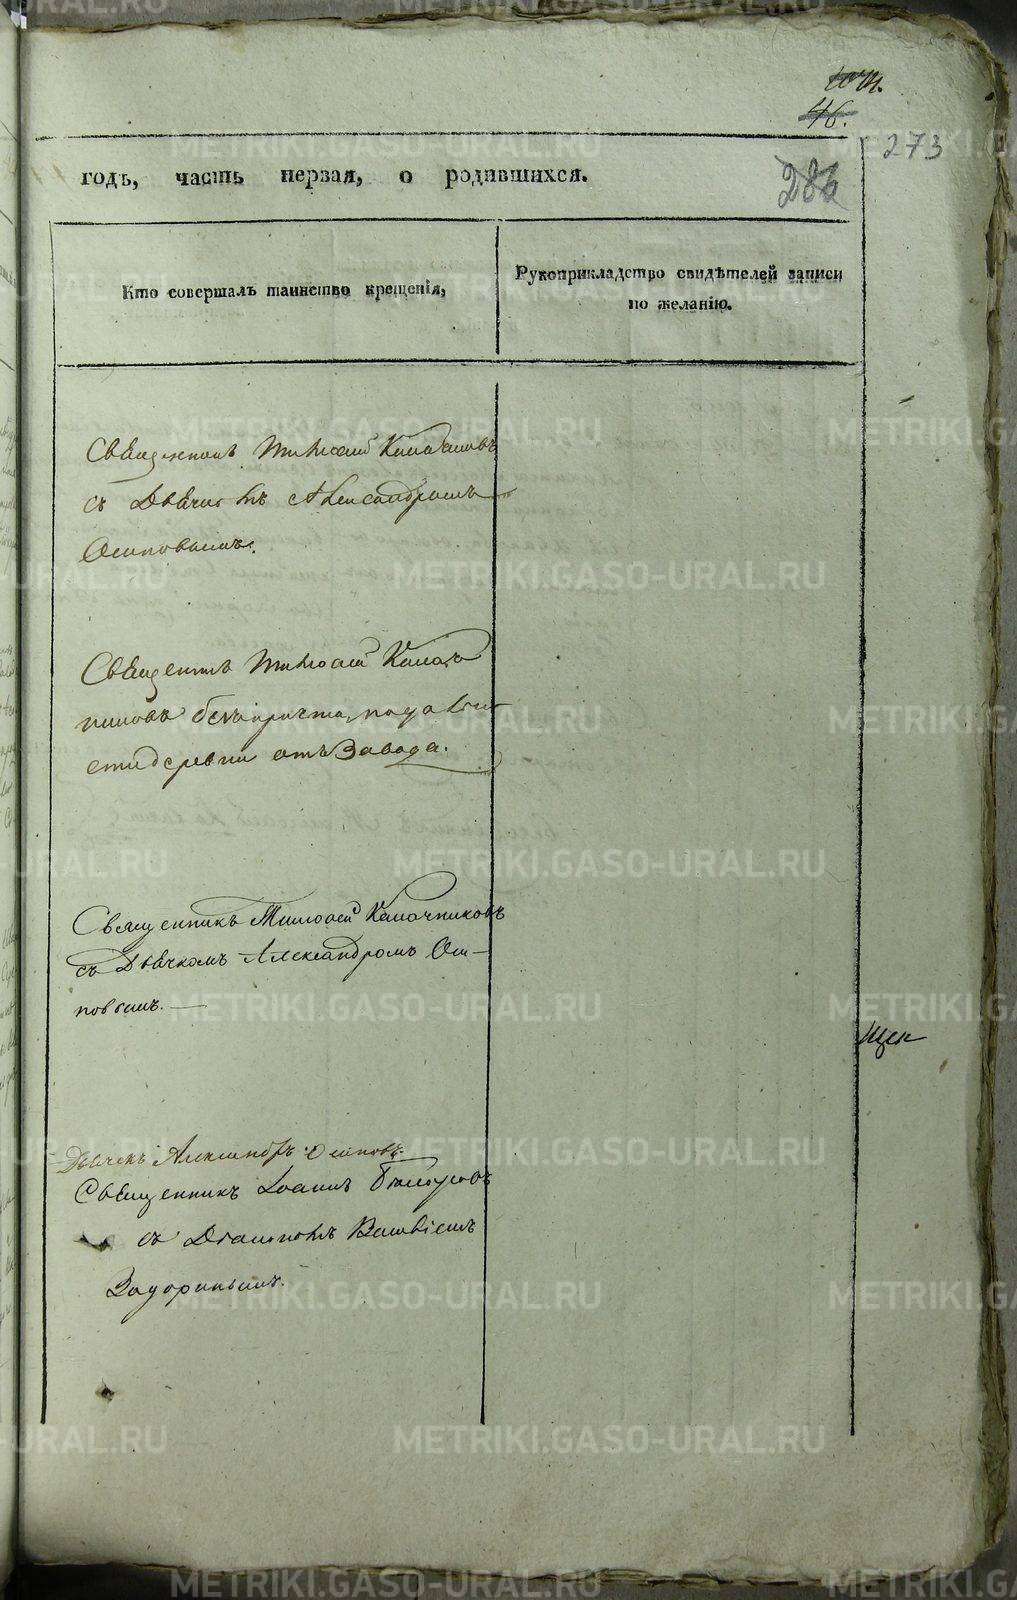 46.
273
годъ, часть первая, о родившихся.
286
Кто совершалъ таинство крещенія,
Рукоприкладство свидѣтелей записи
по желанію.
Священникъ Тимофей
съ Дьячкомъ Александромъ
Осиповымъ.
Священникъ Тимофей Калач
никовъ безъ причта, по дально
сти деревни отъ Завода.
Священникъ Тимофей Калачниковъ
съ Дьячкомъ Александромъ Оси-
повымъ. —
Дьячекъ Александръ Осиповъ.
Священникъ Іоаннъ
съ Діакономъ
Задоринымъ.
METRIKI.GASO-URAL.RU